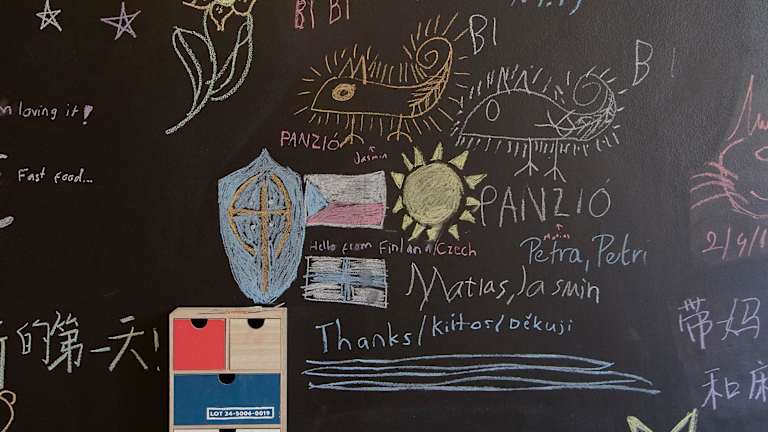 BI BI
BI
BI
loving it!
PANZIÓ
Jasmin
Fast food...
PANZIÓ
Hello from Finland/Czech
Matias
Petra, Petri
Matias, Jasmin
的第一天!
Thanks/Kiitos/Děkuji
带妈
和
LOT 24-5006-0019